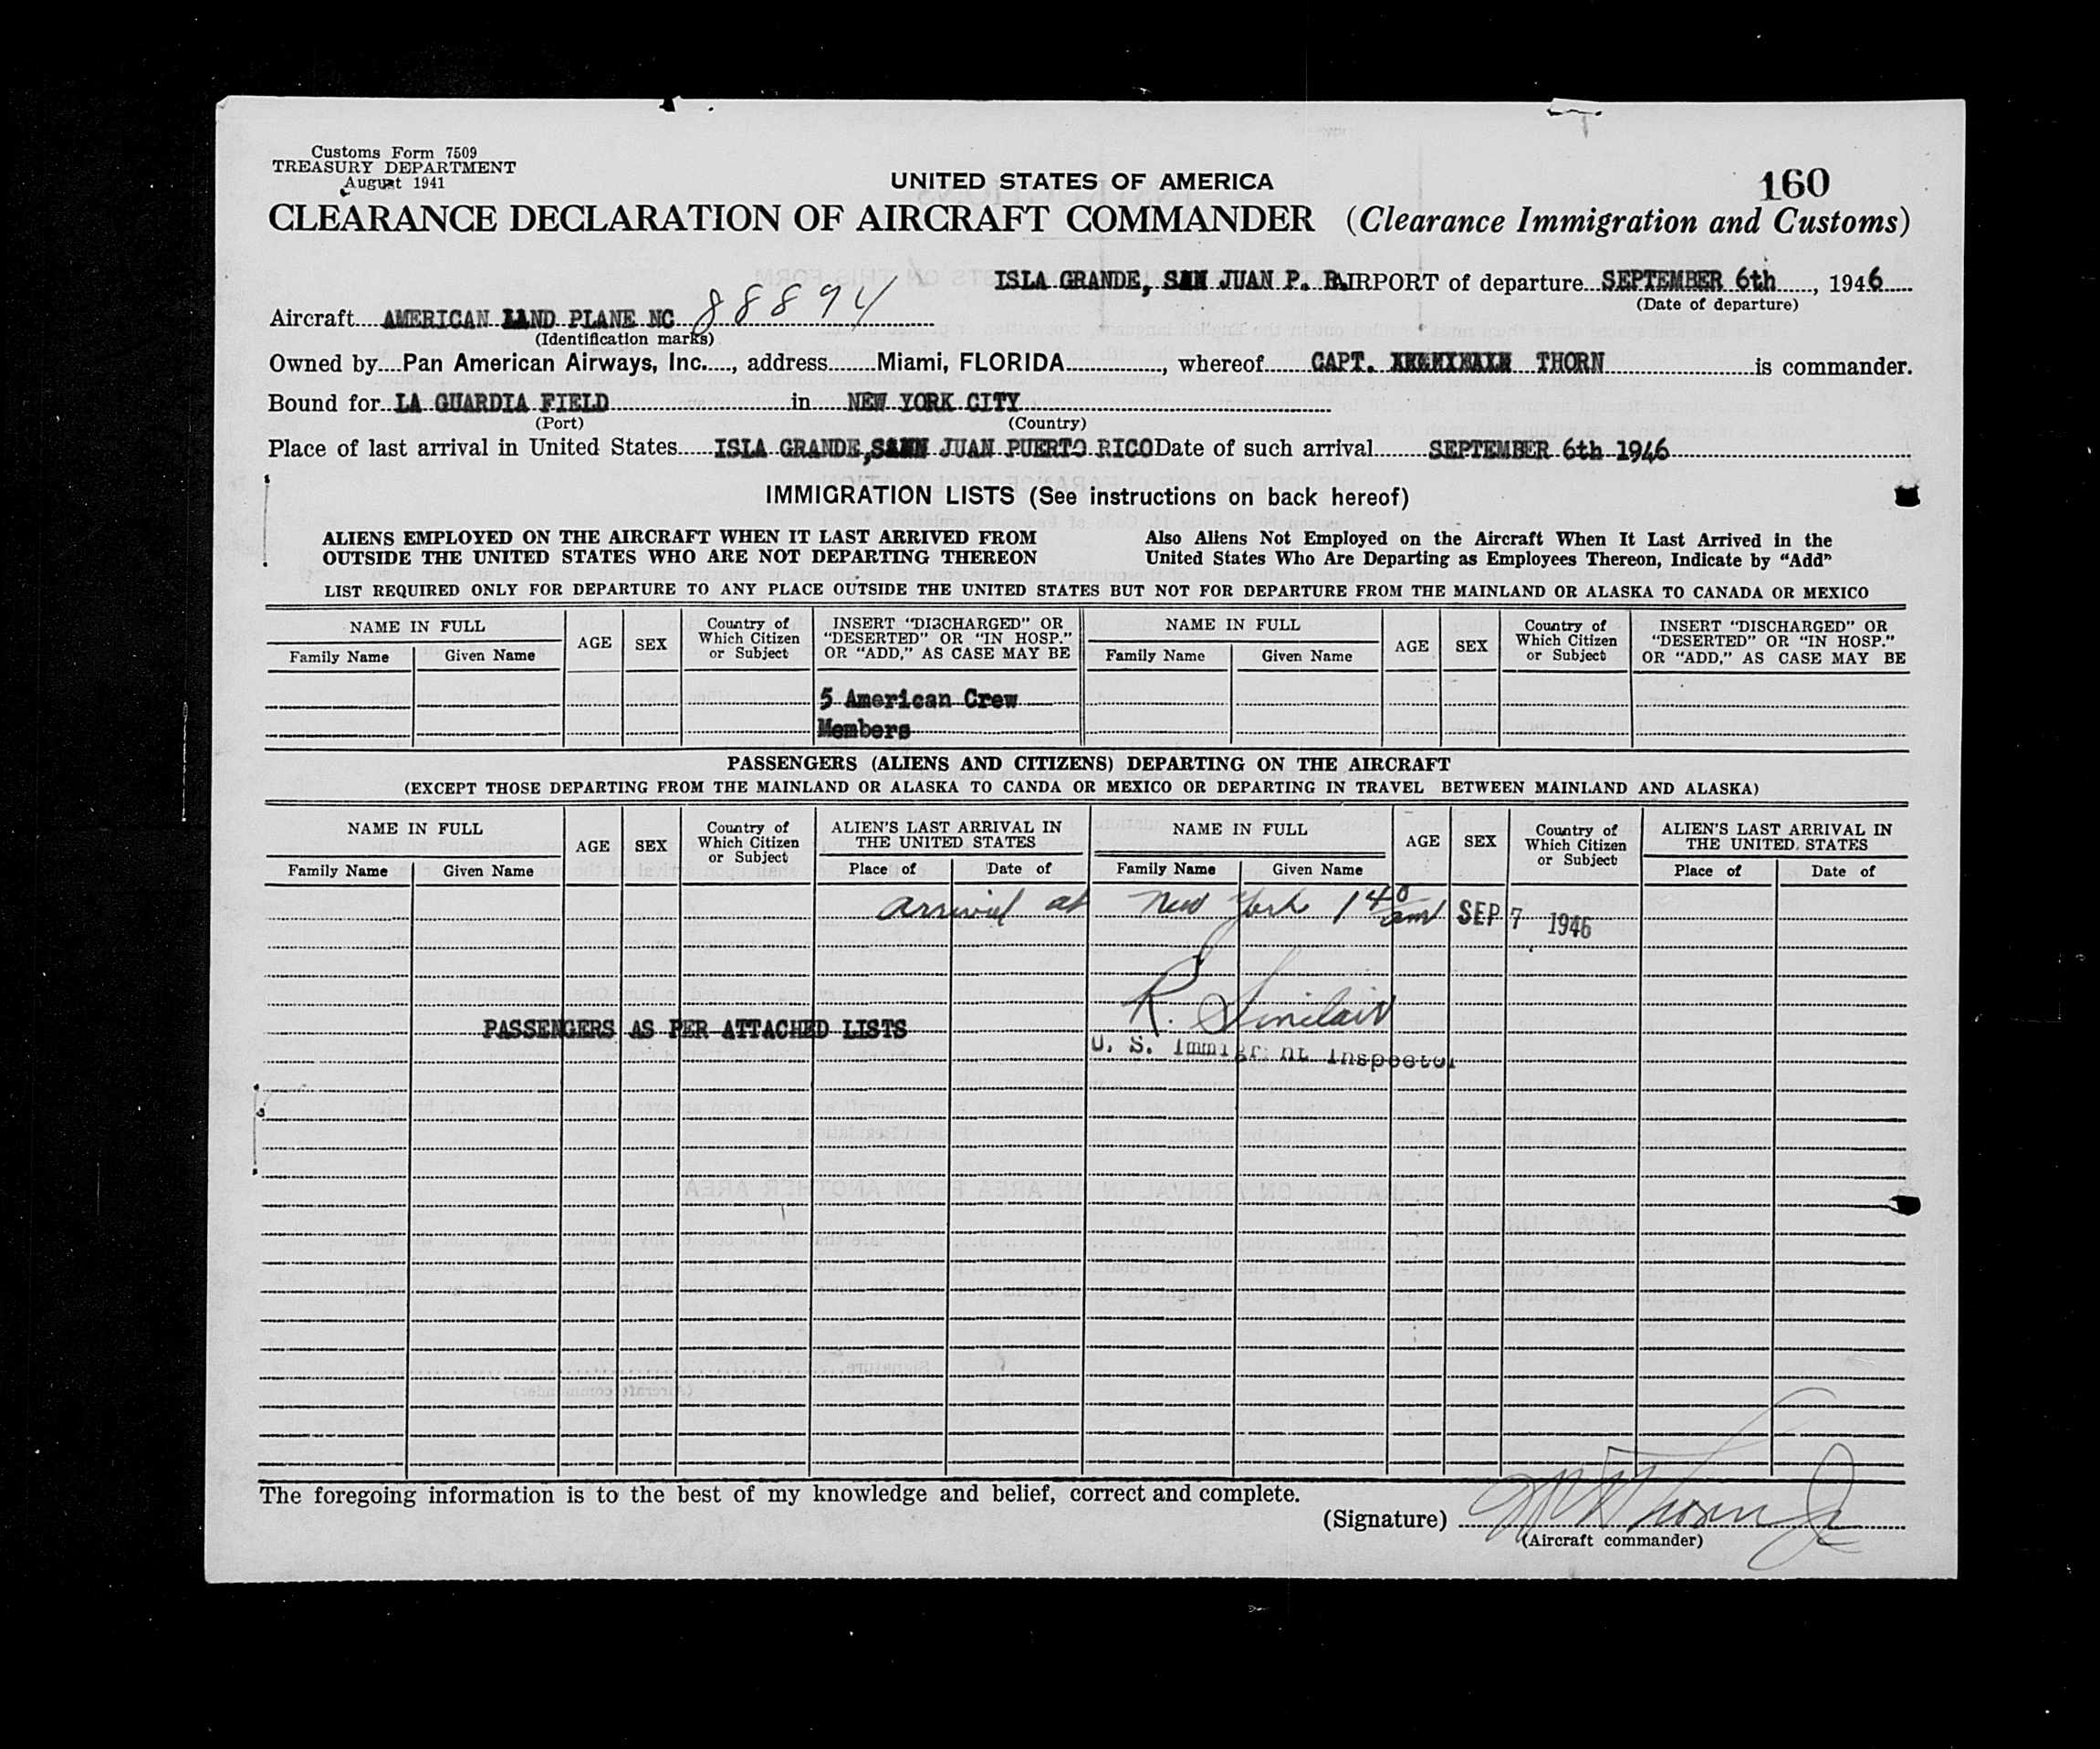 Customs Form 7509
TREASURY DEPARTMENT
August 1941
UNITED STATES OF AMERICA
160
CLEARANCE DECLARATION OF AIRCRAFT COMMANDER (Clearance Immigration and Customs)
ISLA GRANDE, SAN JUAN P. R. AIRPORT of departure SEPTEMBER 6th, 1946
(Date of departure)
Aircraft AMERICAN LAND PLANE NC 88894
(Identification marks)
Owned by Pan American Airways, Inc., address Miami, FLORIDA, whereof CAPT. THORN is commander.
Bound for LA GUARDIA FIELD in NEW YORK CITY
(Port) (Country)
Place of last arrival in United States ISLA GRANDE, SAN JUAN PUERTO RICO Date of such arrival SEPTEMBER 6th 1946
IMMIGRATION LISTS (See instructions on back hereof)
ALIENS EMPLOYED ON THE AIRCRAFT WHEN IT LAST ARRIVED FROM
OUTSIDE THE UNITED STATES WHO ARE NOT DEPARTING THEREON
Also Aliens Not Employed on the Aircraft When It Last Arrived in the
United States Who Are Departing as Employees Thereon, Indicate by "Add"
LIST REQUIRED ONLY FOR DEPARTURE TO ANY PLACE OUTSIDE THE UNITED STATES BUT NOT FOR DEPARTURE FROM THE MAINLAND OR ALASKA TO CANADA OR MEXICO
NAME IN FULL
Family Name Given Name
AGE
SEX
Country of
Which Citizen
or Subject
INSERT "DISCHARGED" OR
"DESERTED" OR "IN HOSP."
OR "ADD," AS CASE MAY BE
NAME IN FULL
Family Name Given Name
AGE
SEX
Country of
Which Citizen
or Subject
INSERT "DISCHARGED" OR
"DESERTED" OR "IN HOSP."
OR "ADD," AS CASE MAY BE
5 American Crew
Members
PASSENGERS (ALIENS AND CITIZENS) DEPARTING ON THE AIRCRAFT
(EXCEPT THOSE DEPARTING FROM THE MAINLAND OR ALASKA TO CANDA OR MEXICO OR DEPARTING IN TRAVEL BETWEEN MAINLAND AND ALASKA)
NAME IN FULL
Family Name Given Name
AGE
SEX
Country of
Which Citizen
or Subject
ALIEN'S LAST ARRIVAL IN
THE UNITED STATES
Place of Date of
NAME IN FULL
Family Name Given Name
AGE
SEX
Country of
Which Citizen
or Subject
ALIEN'S LAST ARRIVAL IN
THE UNITED STATES
Place of Date of
arrival at New York 1 40 am SEP 7 1946
R. Sinclair
PASSENGERS AS PER ATTACHED LISTS
U. S. Immigrant Inspector
The foregoing information is to the best of my knowledge and belief, correct and complete.
(Signature) Thorn Jr
(Aircraft commander)